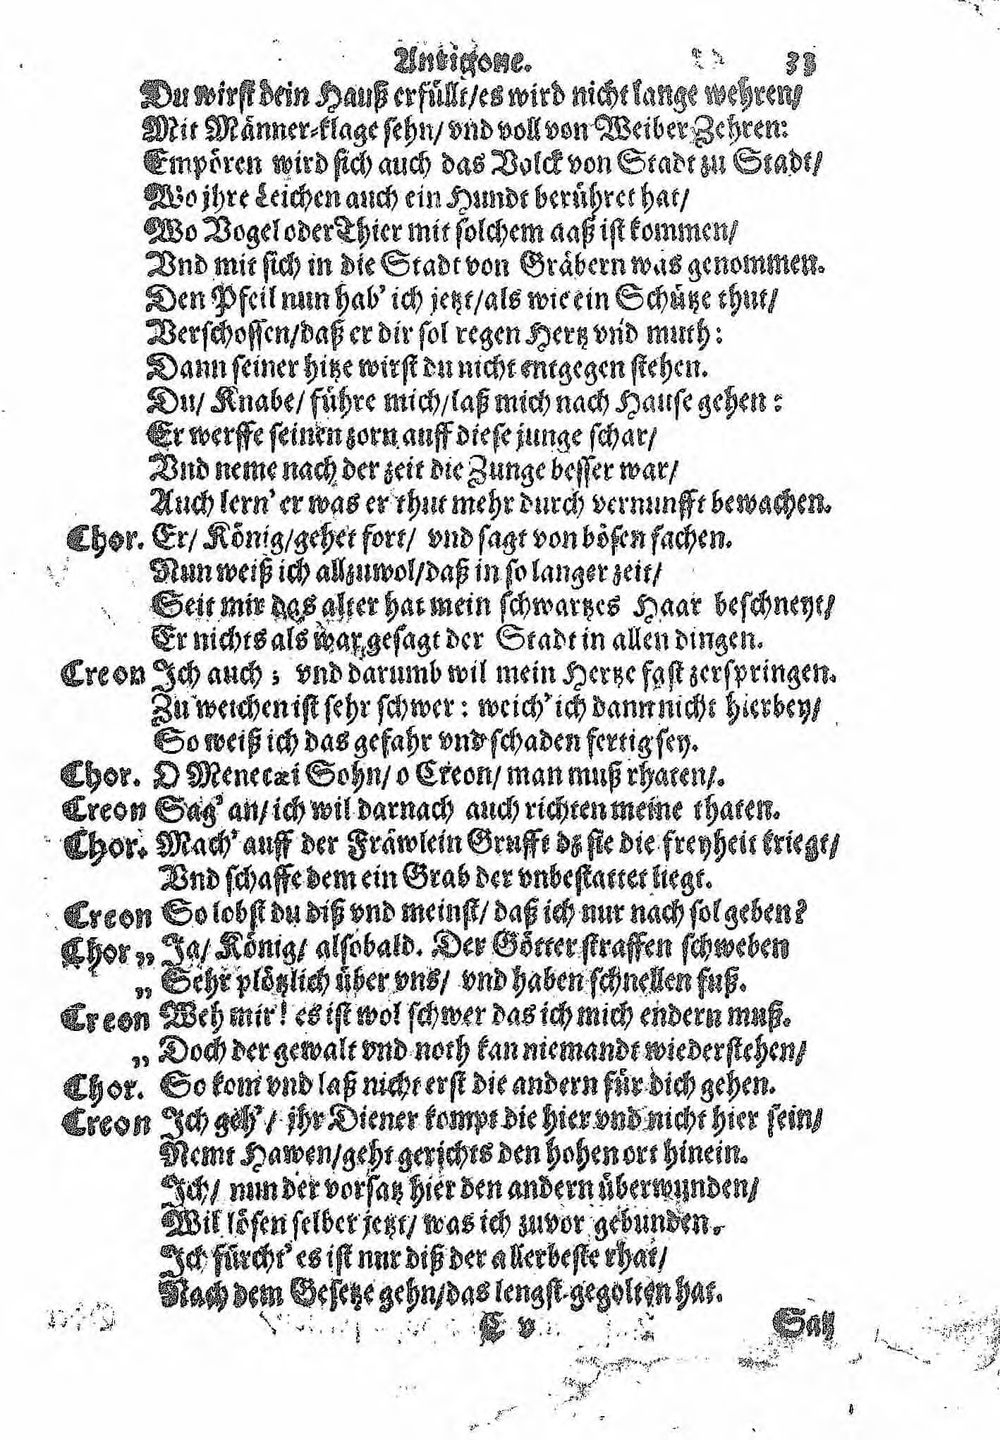 Antigone. 33
Du wirst dein Hauß erfüllt/es wird nicht lange wehren/
Mit Männer-klage sehn/ vnd voll von Weiber Zehren:
Empören wird sich auch das Volck von Stadt zu Stadt/
Wo jhre Leichen auch ein Hundt berühret hat/
Wo Vogel oder Thier mit solchem aaß ist kommen/
Vnd mit sich in die Stadt von Gräbern was genommen.
Den Pfeil nun hab' ich jetzt/als wie ein Schütze thut/
Verschossen/daß er dir sol regen Hertz vnd muth:
Dann seiner hitze wirst du nicht entgegen stehen.
Du/ Knabe/ führe mich/laß mich nach Hause gehen:
Er werffe seinen zorn auff diese junge schar/
Vnd neme nach der zeit die Zunge besser war/
Auch lern' er was er thut mehr durch vernunfft bewachen.
Chor. Er/ König/gehet fort/ vnd sagt von bösen sachen.
Nun weiß ich allzuwol/daß in so langer zeit/
Seit mir das alter hat mein schwartzes Haar beschneyt/
Er nichts als war gesagt der Stadt in allen dingen.
Creon Ich auch; vnd darumb wil mein Hertze fast zerspringen.
Zu weichen ist sehr schwer: weich' ich dann nicht hierbey/
So weiß ich das gefahr vnd schaden fertig sey.
Chor. O Menecæi Sohn/o Creon/ man muß rhaten/.
Creon Sag' an/ich wil darnach auch richten meine thaten.
Chor. Mach' auff der Fräwlein Grufft dz sie die freyheit kriegt/
Vnd schaffe dem ein Grab der vnbestattet liegt.
Creon So lobst du diß vnd meinst/ daß ich nur nach sol geben?
Chor „ Ja/ König/ alsobald. Der Götter straffen schweben
„ Sehr plötzlich über vns/ vnd haben schnellen fuß.
Creon Weh mir! es ist wol schwer das ich mich endern muß.
„ Doch der gewalt vnd noth kan niemandt wiederstehen/
Chor. So kom vnd laß nicht erst die andern für dich gehen.
Creon Ich geh'/ jhr Diener kompt die hier vnd nicht hier sein/
Nemt Hawen/geht gerichts den hohen ort hinein.
Ich/ nun der vorsatz hier den andern überwunden/
Wil lösen selber jetzt/ was ich zuvor gebunden.
Ich fürcht' es ist nur diß der allerbeste rhat/
Nach dem Gesetze gehn/das lengst gegolten hat.
C v Satz